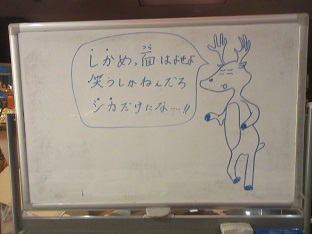 しかめっ面はよせよ
笑うしかねんだろ
シカだけにな〜!!